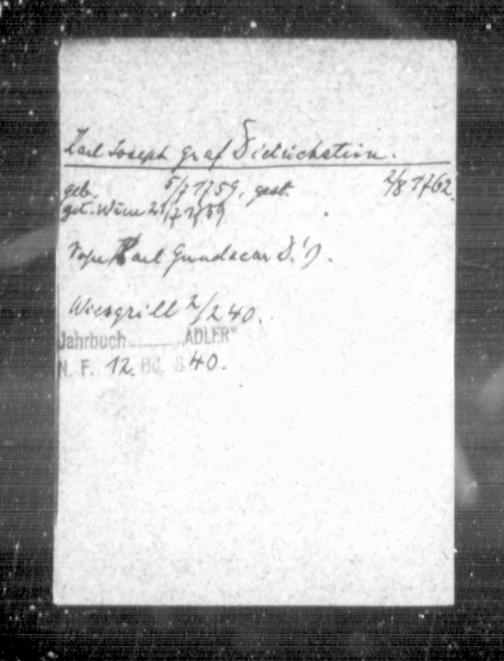 Karl Joseph Graf Dietrichstein.
geb. 5/7 1759, gest. 2/8 1762.
get. Wien 21/7 1759
Karl Gundacar D.
Wissgrill 2/240.
Jahrbuch "ADLER"
N. F. 12. Bd. S 40.